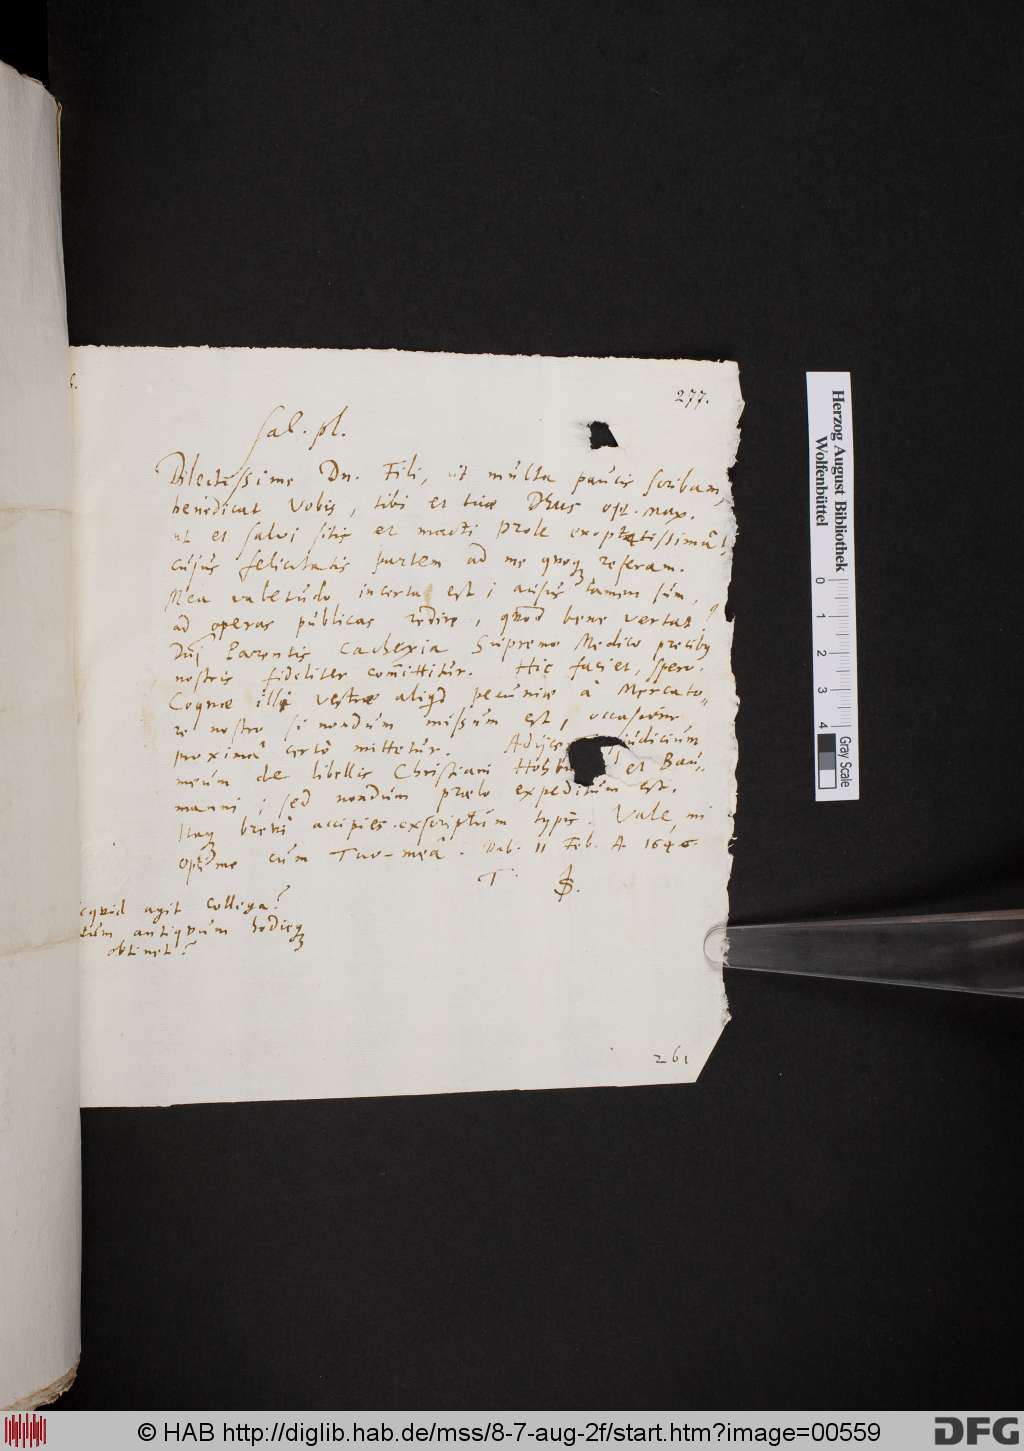 277.
Sal. pl.
Dilectissime Dn. Fili, ut multa paucis scribam,
benedicat Vobis, tibi et tuae Deus opt. max.
ut et salvi sitis et macti prole exoptatissimâ,
cujus felicitatis partem ad me quoq referam.
Mea valetudo incerta est; ausus tamen sum,
ad operas publicas redire, quod bene vertat
Dnj Parentis Cachexia Supremo Medico precib9
nostris fideliter committitur. Hic faciet, spero.
Coqnae illi vestrae aliqd pecuniae â Mercato-
re nostro si nondum missum est, occasione
proximâ certò mittetur. judicium
meum de libellis Christiani et Bau-
manni; sed nondum praelo expeditum est.
Itaq brevi accipies exscriptum typis. Vale, mi
optime cum Tuo-meâ. 11 Feb. A. 1646
T.
quid agit collega?
antiquum hodieq
obtinet?
261
Herzog August Bibliothek
Wolfenbüttel
0 1 2 3 4
Gray Scale
© HAB http://diglib.hab.de/mss/8-7-aug-2f/start.htm?image=00559
DFG